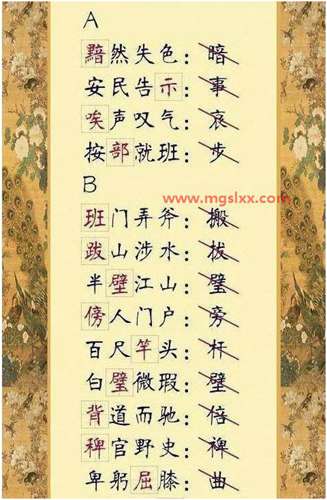 A
黯然失色：暗
安民告示：事
唉声叹气：哀
按部就班：步
B
www.mgslxx.com
班门弄斧：搬
跋山涉水：拔
半壁江山：璧
傍人门户：旁
百尺竿头：杆
白璧微瑕：壁
背道而驰：倍
稗官野史：裨
卑躬屈膝：曲